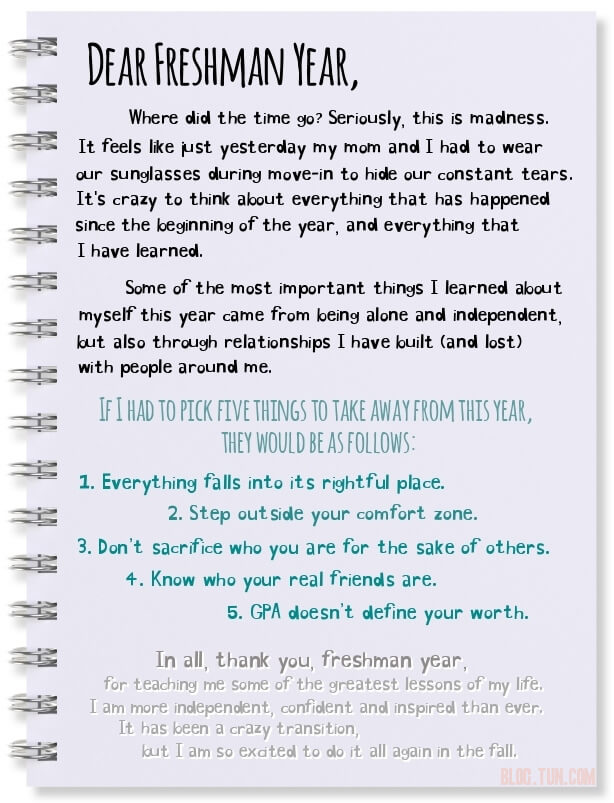 DEAR FRESHMAN YEAR,
Where did the time go? Seriously, this is madness.
It feels like just yesterday my mom and I had to wear
our sunglasses during move-in to hide our constant tears.
It's crazy to think about everything that has happened
since the beginning of the year, and everything that
I have learned.
Some of the most important things I learned about
myself this year came from being alone and independent,
but also through relationships I have built (and lost)
with people around me.
IF I HAD TO PICK FIVE THINGS TO TAKE AWAY FROM THIS YEAR,
THEY WOULD BE AS FOLLOWS:
1. Everything falls into its rightful place.
2. Step outside your comfort zone.
3. Don't sacrifice who you are for the sake of others.
4. Know who your real friends are.
5. GPA doesn't define your worth.
In all, thank you, freshman year,
for teaching me some of the greatest lessons of my life.
I am more independent, confident and inspired than ever.
It has been a crazy transition,
but I am so excited to do it all again in the fall.
BLOG.TUN.COM